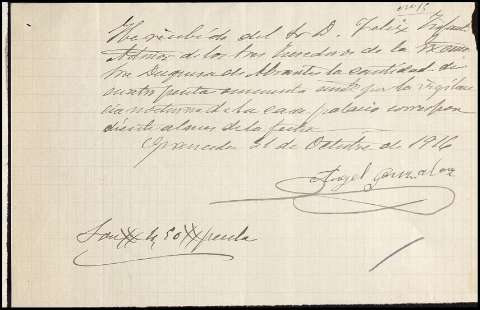 He recibido del Sr D. Felix
Admor de los tres de la
Duquesa de Abrantes la cantidad de
cuatro pesetas cincuenta cents por la vigilan
cia nocturna de la casa palacio correspon
diente al mes de la fecha
Granada 31 de Octubre de 1916
Angel Gonzalez